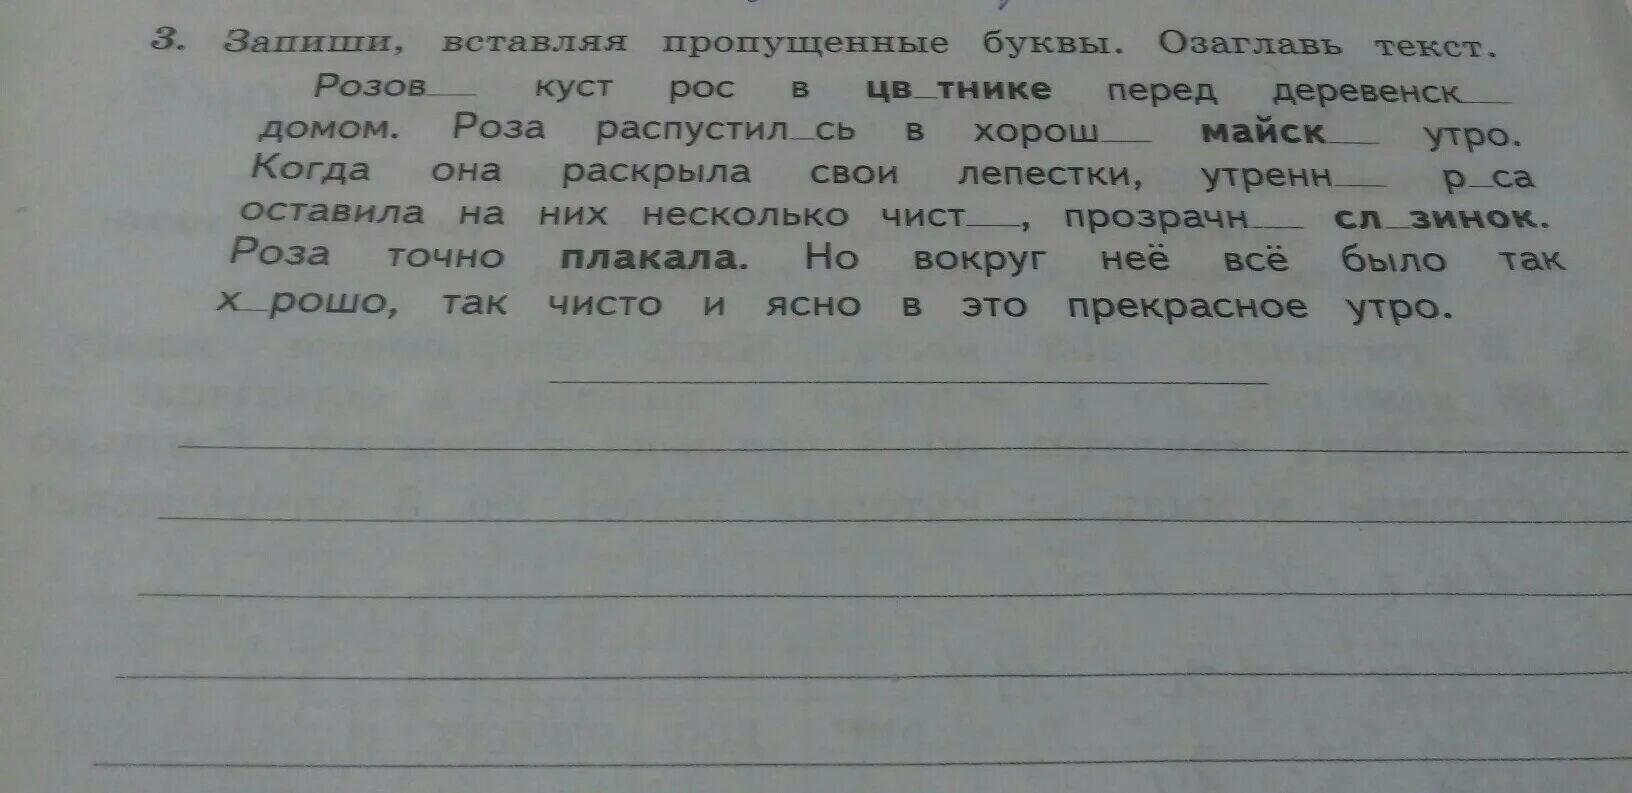 3. Запиши, вставляя пропущенные буквы. Озаглавь текст.
Розов__ куст рос в цв_тнике перед деревенск__
домом. Роза распустил_сь в хорош__ майск__ утро.
Когда она раскрыла свои лепестки, утренн__ р_са
оставила на них несколько чист__, прозрачн__ сл_зинок.
Роза точно плакала. Но вокруг неё всё было так
х_рошо, так чисто и ясно в это прекрасное утро.